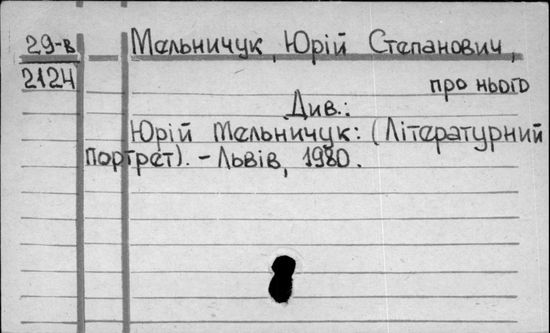 29-в Мельничук, Юрій Степанович,
2124
про нього
Див.:
Юрій Мельничук: (Літературний
портрет). - Львів, 1980.